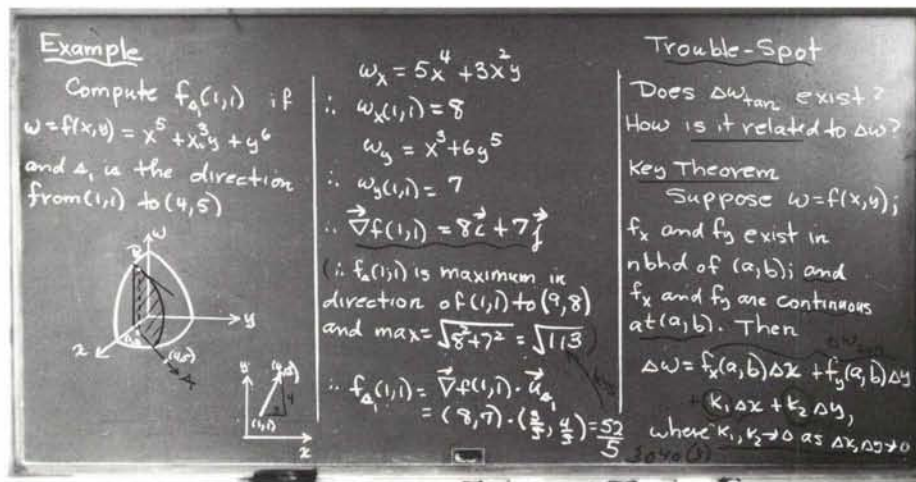 Example
Compute f_{s_1}(1,1) if
w = f(x,y) = x^5 + x^3y + y^6
and s_1 is the direction
from (1,1) to (4,5)
w
y
x
(4,5)
y
(4,5)
4
3
(1,1)
x
w_x = 5x^4 + 3x^2y
∴ w_x(1,1) = 8
w_y = x^3 + 6y^5
∴ w_y(1,1) = 7
∴ ∇⃗f(1,1) = 8i⃗ + 7j⃗
(∴ f_s(1,1) is maximum in
direction of (1,1) to (9,8)
and max = √(8^2+7^2) = √113)
∴ f_{s_1}(1,1) = ∇⃗f(1,1) · u⃗_{s_1}
= (8,7) · (3/5, 4/5) = 52/5
Trouble-Spot
Does Δw_tan exist?
How is it related to Δw?
Key Theorem
Suppose w = f(x,y);
f_x and f_y exist in
nbhd of (a,b); and
f_x and f_y are continuous
at (a,b). Then
Δw_tan
Δw = f_x(a,b)Δx + f_y(a,b)Δy
+ k_1Δx + k_2Δy,
where k_1, k_2 → 0 as Δx, Δy → 0
3040(8)